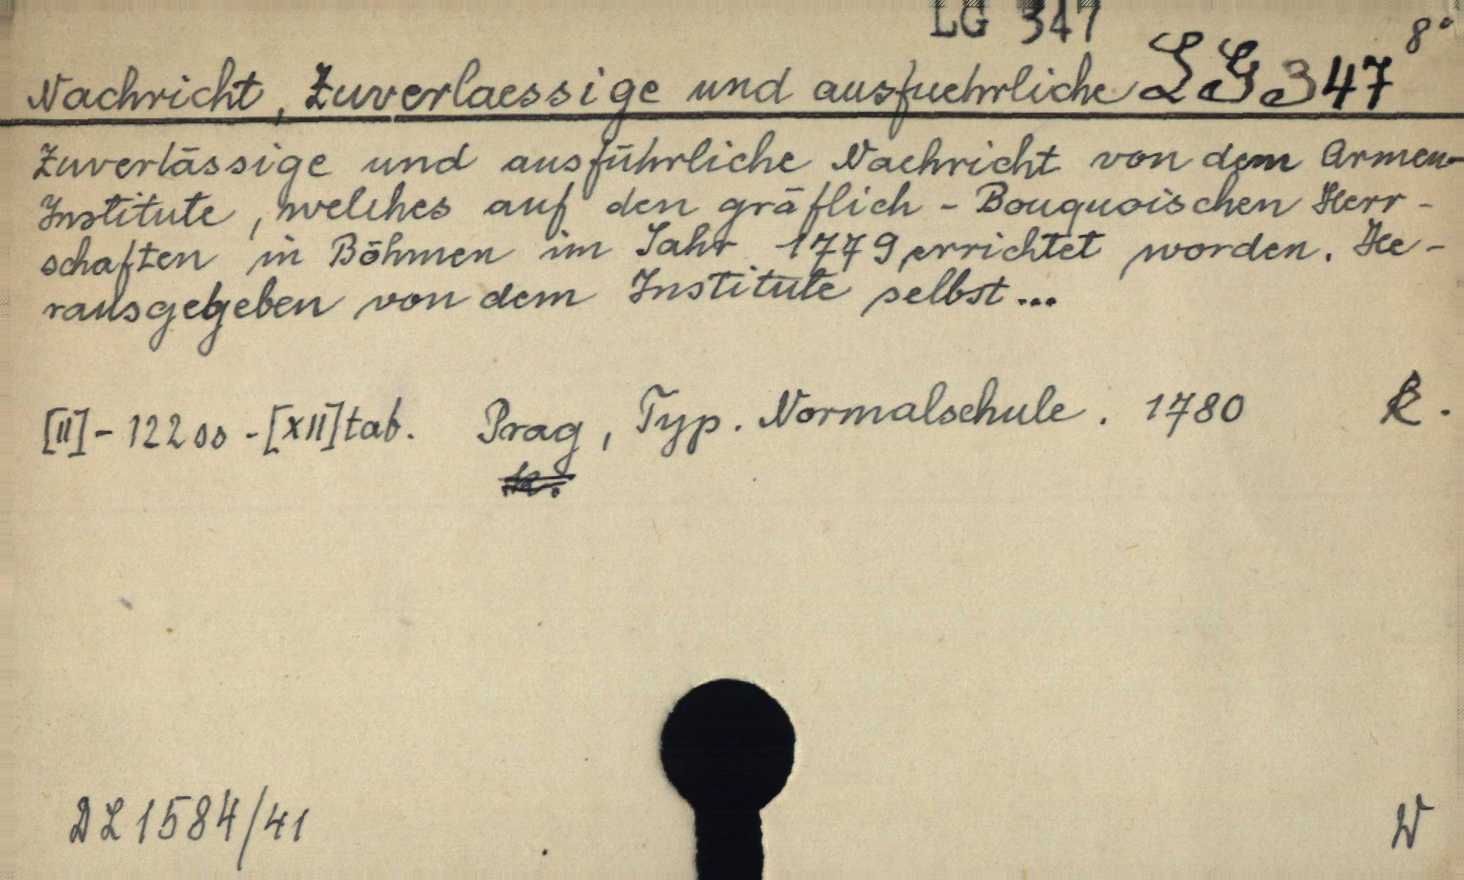 LG 347
8°
Nachricht, Zuverlaessige und ausfuehrliche LG 347
Zuverlässige und ausführliche Nachricht von dem Armen-
Institute, welches auf den gräflich-Bouquoischen Herr-
schaften in Böhmen im Jahr 1779 errichtet worden. He-
rausgegeben von dem Institute selbst...
[II]-122 ss-[XII]tab. Prag, Typ. Normalschule. 1780 R.
DL 1584/41 W